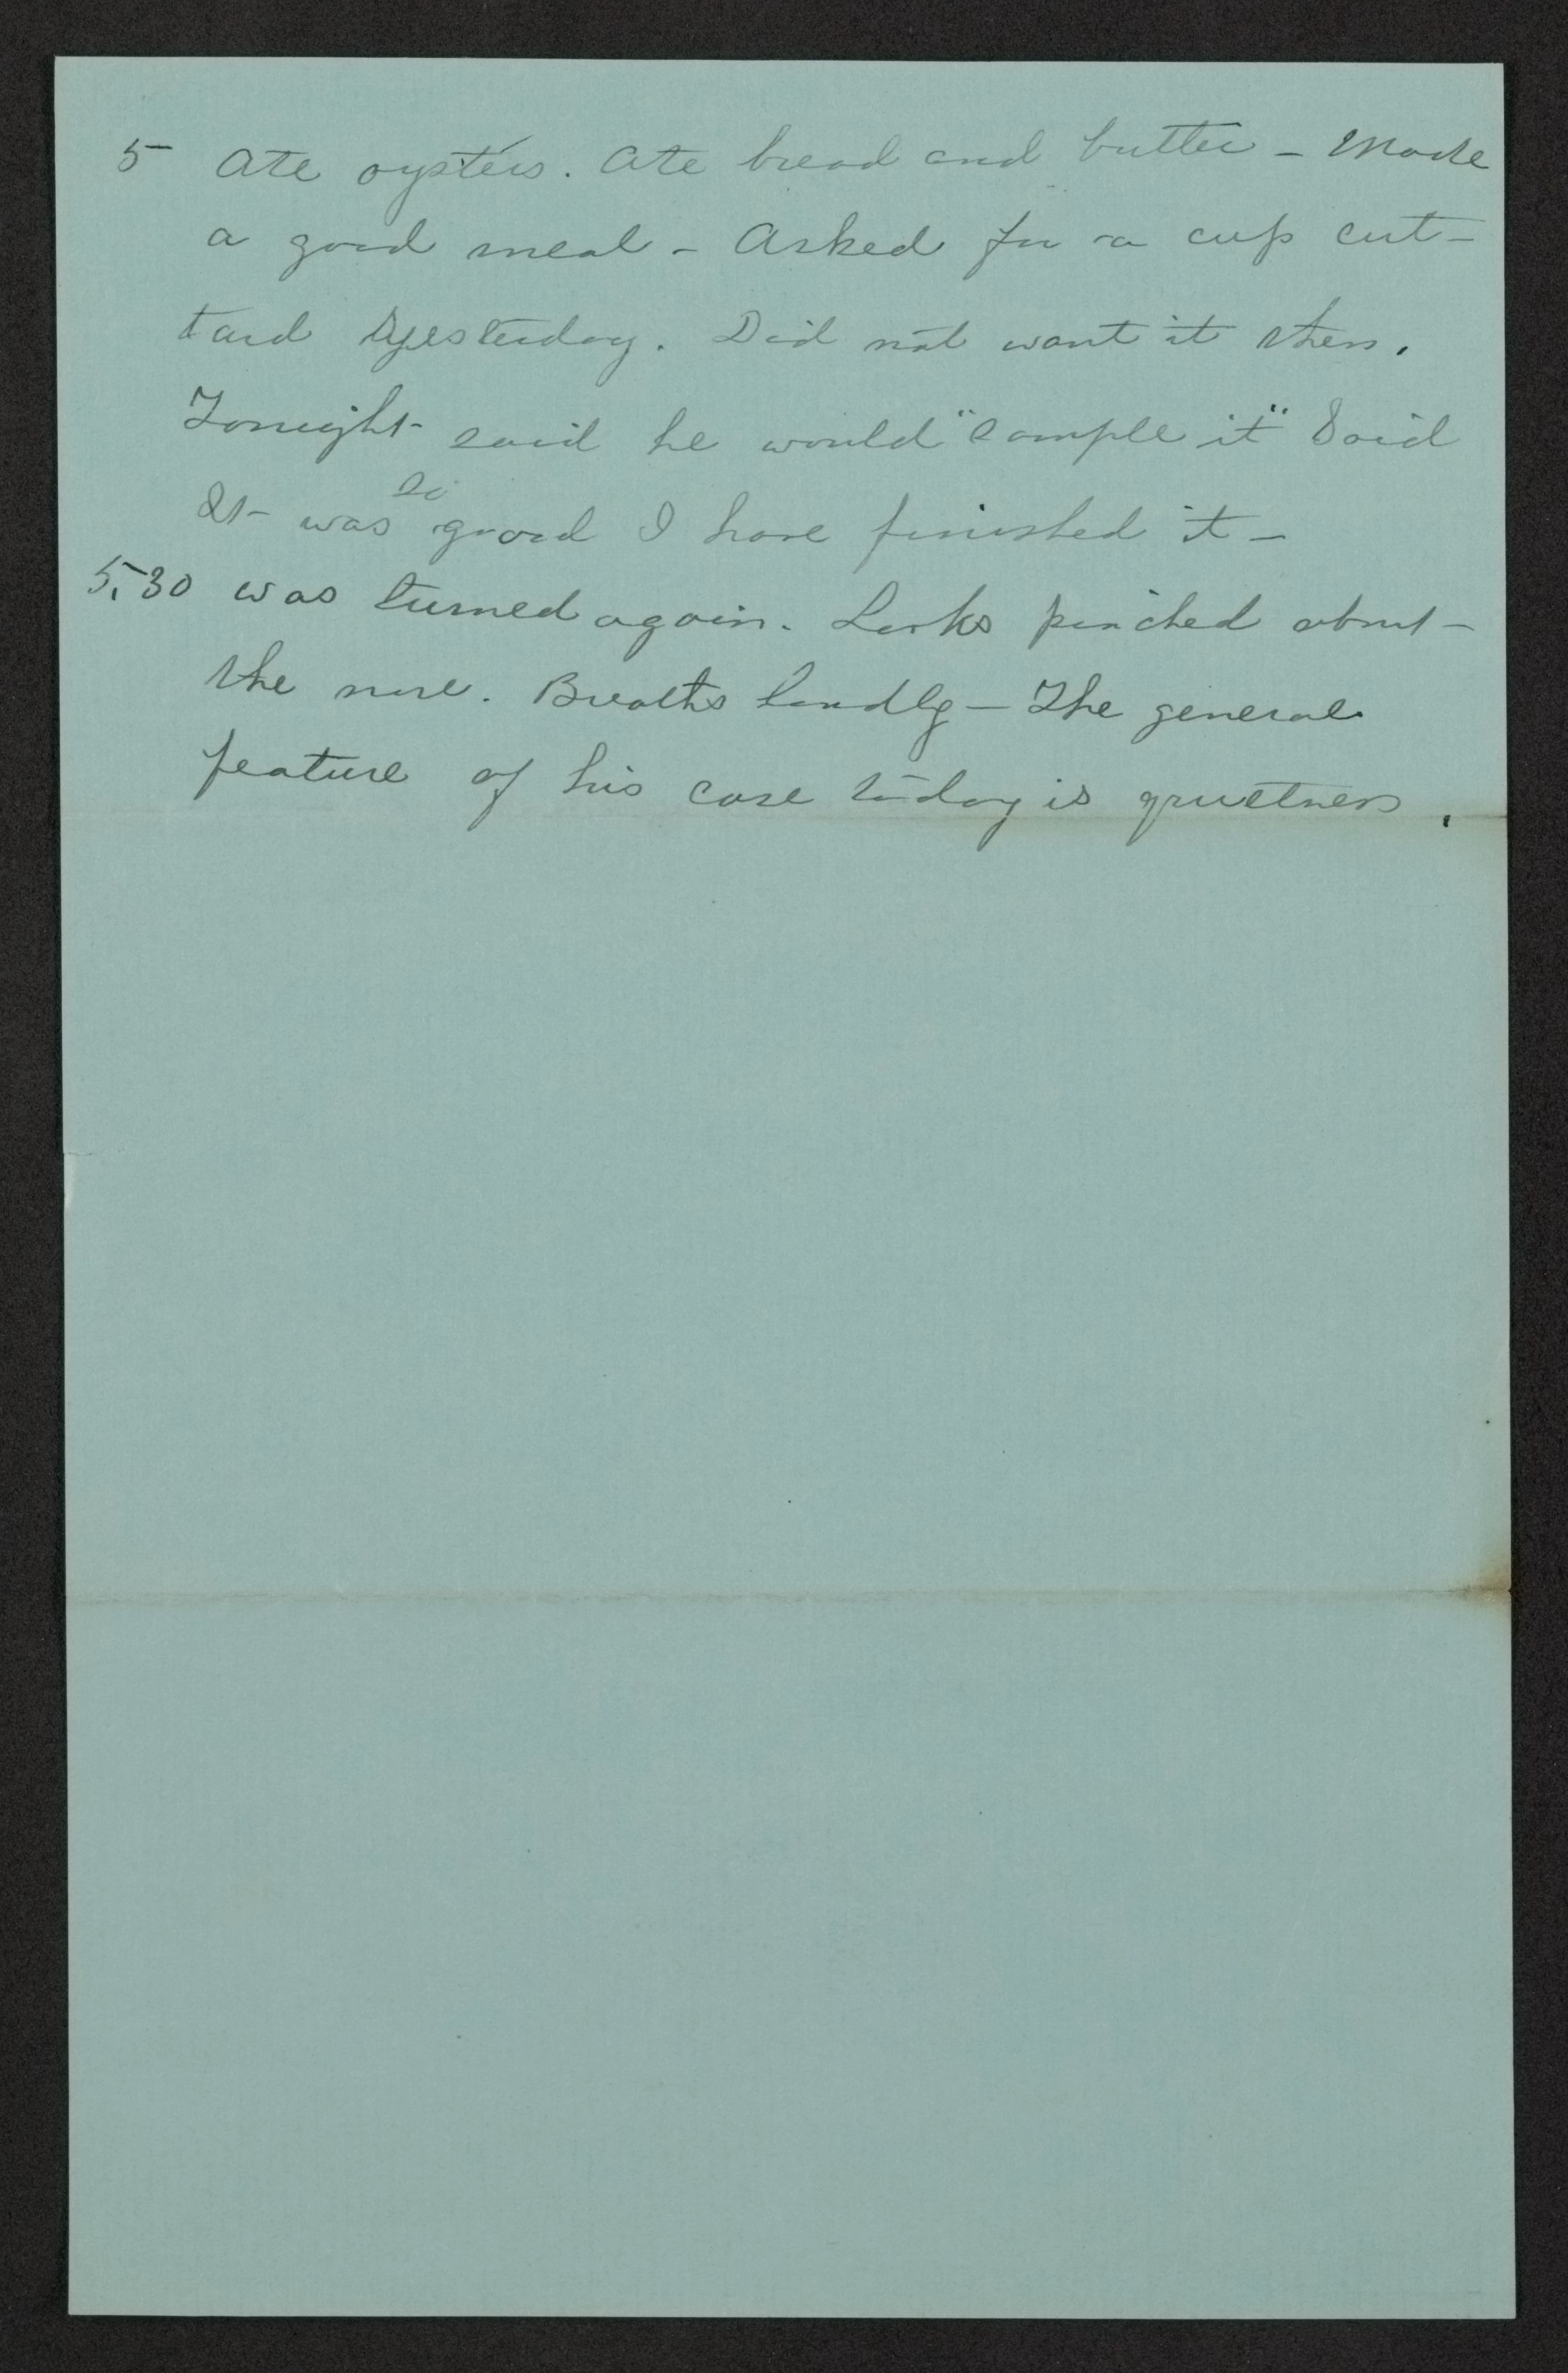 5 Ate oysters. Ate bread and butter – Made
a good meal – Asked for a cup cus-
tard yesterday. Did not want it then.
Tonight said he would "sample it" Said
so
It was good I have finished it –
5.30 was turned again. Looks pinched about
the nose. Breaths loudly – The general
feature of his case today is quietness.